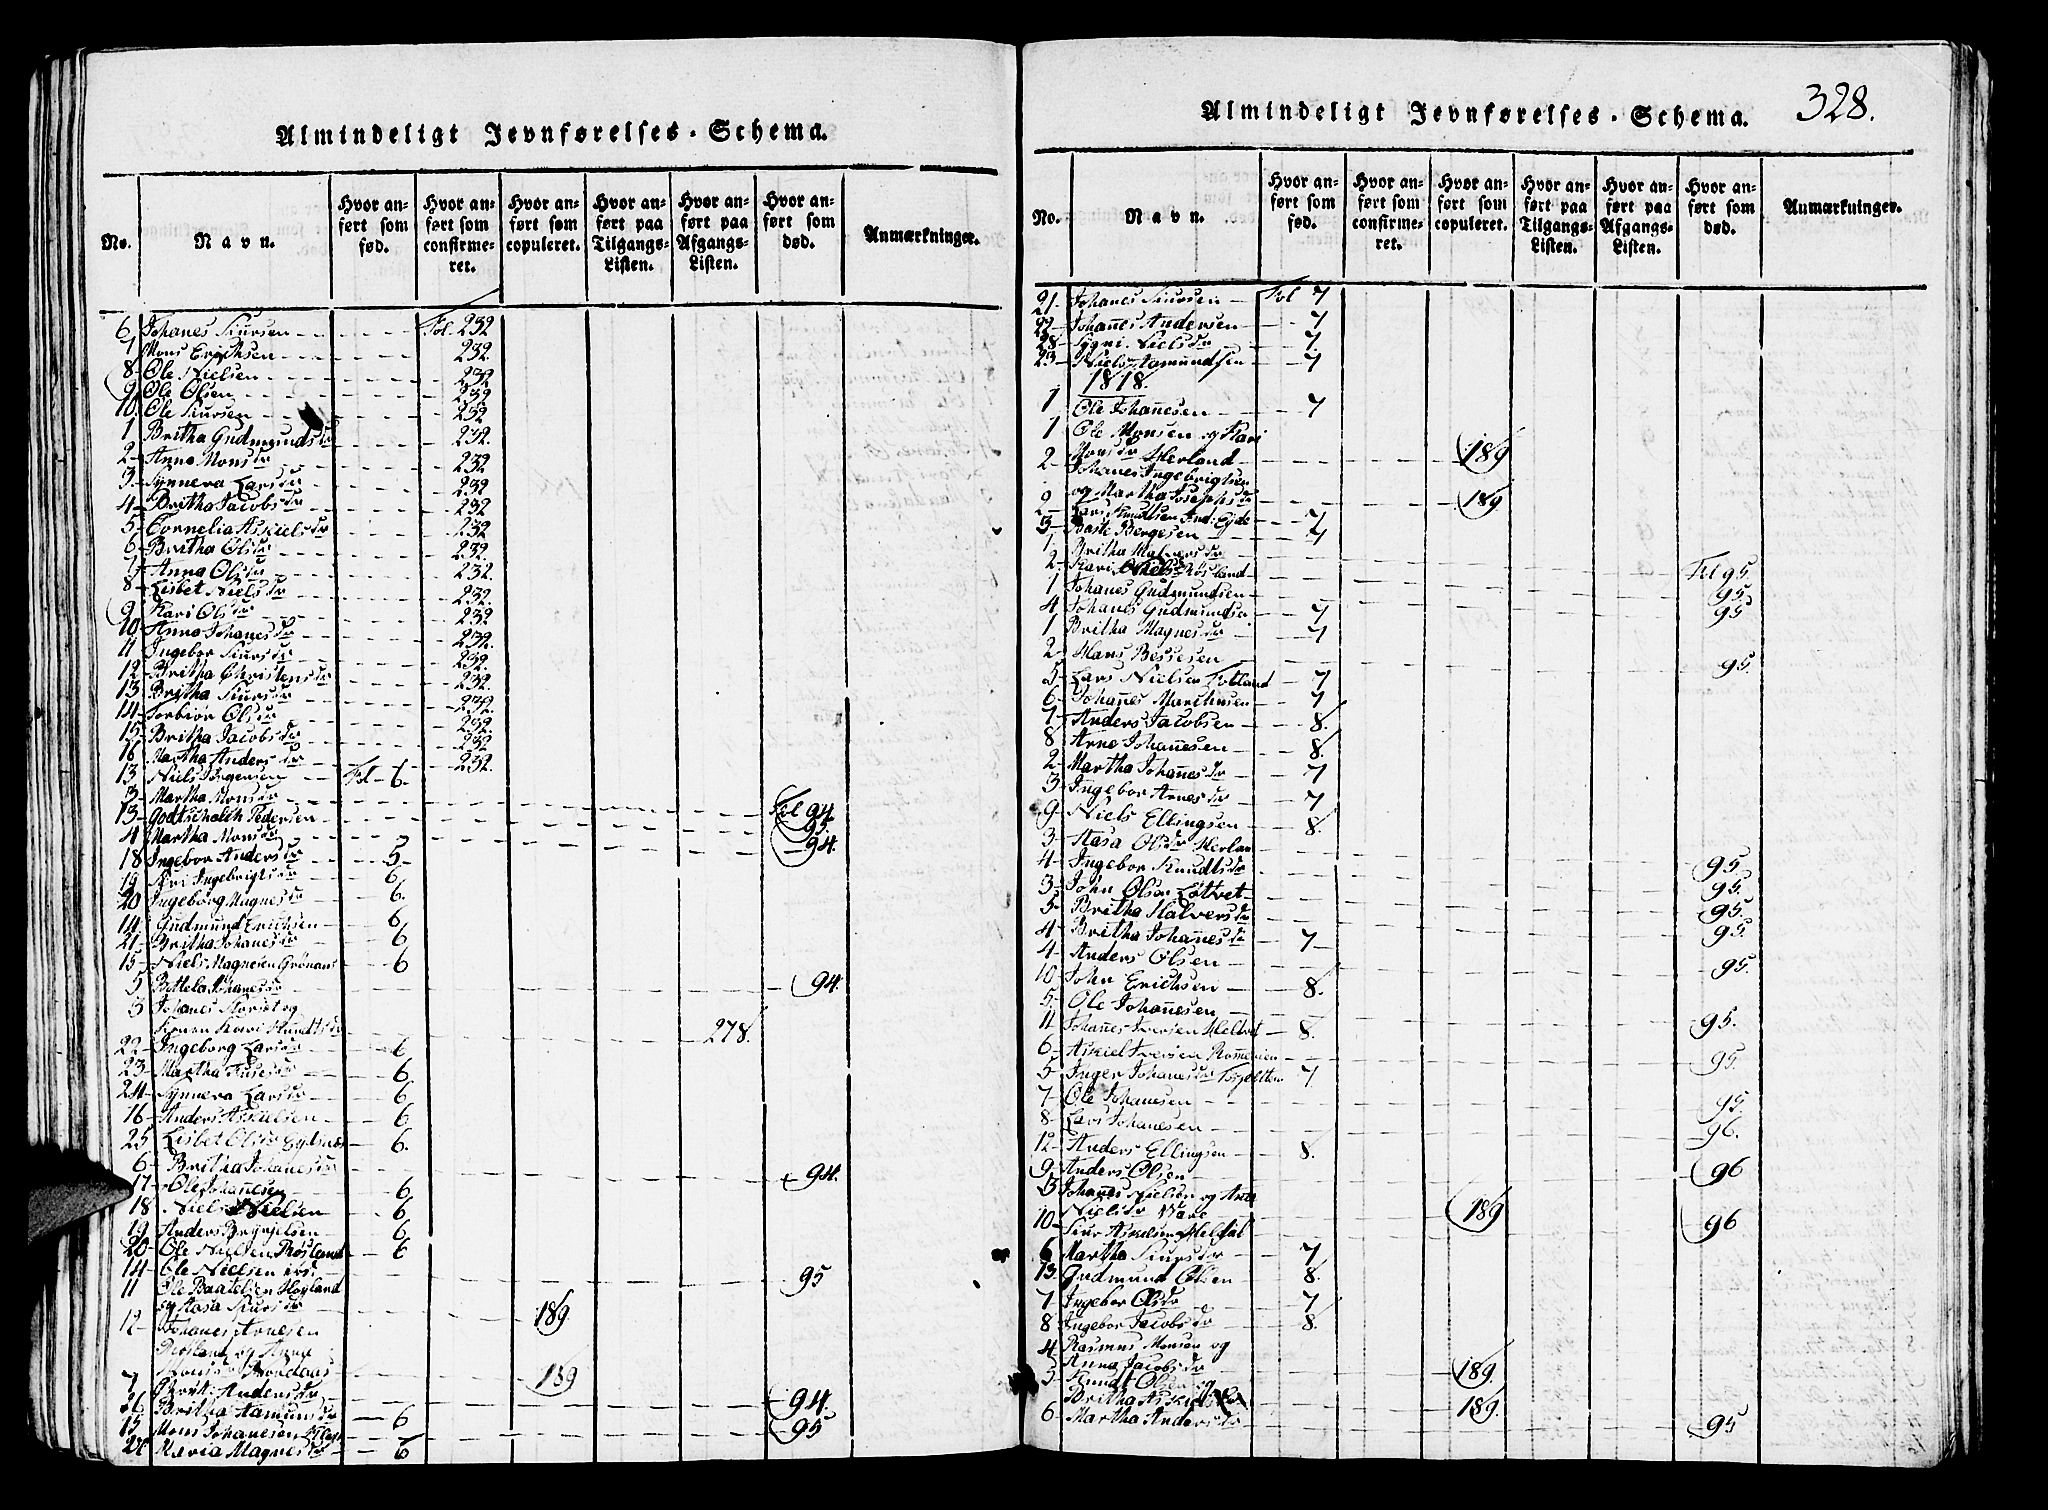 Almindeligt Jevnførelses-Schema.
No. Navn. Hvor anført som fød. Hvor anført som confirmeret. Hvor anført som copuleret. Hvor anført paa Tilgangs-Listen. Hvor anført paa Afgangs-Listen. Hvor anført som død. Anmærkninger.
6 Johanes Siursen Fol. 232
7 Mons Erichsen 232.
8 Ole Nielsen 232
9 Ole Olsen 232
10 Ole Siursen 232
1 Britha Gudmundsdr 232.
2 Anne Monsdr 232
3 Synneva Larsdr 232
4 Britha Jacobsdr 232
5 Cornelia Askielsdr 232
6 Britha Olsdr 232.
7 Anna Olsdr 232.
8 Lisbet Nielsdr 232
9 Kari Olsdr 232
10 Anna Johanesdr 232.
11 Ingebor Siursdr 232.
12 Britha Christensdr 232
13 Britha Siursdr 232
14 Torbiør Olsdr 232
15 Britha Jacobsdr 232
16 Martha Andersdr 232.
13 Niels Jørgensen Fol 6
3 Martha Monsdr Fol 94
13 Godtschalch Pedersen 95.
4 Martha Monsdr 94.
18 Ingebor Andersdr 5
19 Siri Ingebrigtsdr 6
20 Ingeborg Magnesdr 6.
14 Gudmund Erichsen 6
21 Britha Johanesdr 6
15 Niels Magnesen Grønaas 6
5 Bottela Johanesdr 94.
3 Johanes og
Konen Kari Knudtsdr 278.
22 Ingeborg Larsdr 6
23 Martha 6
24 Synneva Larsdr 6
16 Anders Askielsen 6
25 Lisbet Olsdr 6.
6 Britha Johanesdr 94.
17 Ole Johanesen 6
18 Niels Nielsen 6
19 Anders Brynjelsen 6
20 Ole Nielsen Røsland 6
14 Ole Nielsen 95
11 Ole Baatelsen Høyland
og Aasa Siursdr 189.
12 Johanes Arnesen
Røsland og Anna
Monsdr 189
7 Andersdr 94.
26 Britha Aamundsdr 6
15 Mons Johanesen 95
28 Maria Magnesdr 6
Almindeligt Jevnførelses-Schema. 328.
No. Navn. Hvor anført som fød. Hvor anført som confirmeret. Hvor anført som copuleret. Hvor anført paa Tilgangs-Listen. Hvor anført paa Afgangs-Listen. Hvor anført som død. Anmærkninger.
21 Johanes Siursen Fol 7
22 Johanes Andersen 7
28 Sygni Nielsdr 7.
23 Niels Aamundsen 7
1818.
1 Ole Johanesen 7
1 Ole Monsen og Kari
Monsdr Herland 189
2 Johanes Ingebrigtsen
og Martha Josephsdr 189
2 Lars Knudtsen Ind: Eyde 7
3 Baste Bergesen 7
1 Britha Halversdr
2 Kari Røsland Fol 95.
1 Johanes Gudmundsen 95
4 Johanes Gudmundsen 7 95
1 Britha Magnesdr 7
2 Hans Bessesen 95.
5 Lars Nielsen Fotland 7
6 Johanes Marthisen 7
7 Anders Jacobsen 8.
8 Arne Johanesen 8.
2 Martha Johanesdr 7
3 Ingebor Arnesdr 7
9 Niels Ellingsen 8.
3 Aasa Olsdr Herlan 95
4 Ingebor Knudtsdr 95.
3 John Olsen Løtvet 95.
5 Britha Halversdr 95.
4 Britha Johanesdr 7
4 Anders Olsen 95.
10 John Erichsen 8.
5 Ole Johanesen 95.
11 Johanes Iversen 8.
6 Askiel Iversen 95.
5 Inger Johanesdr 7
7 Ole Johanesen 95.
8 Lars Johanesen 96.
12 Anders Ellingsen 8.
9 Anders Olsen 96
3 Johanes Nielsen og
Nielsdr 189
10 Siur Askielsen Heldal 96
6 Martha Siursdr 7
13 Gudmund Olsen 8.
7 Ingebor Olsdr 7
8 Ingebor Jacobsdr 8.
4 Rasmus Monsen og
Anna Jacobsdr 189.
5 Knudt Olsen og
Britha Askielsdr 189.
6 Martha Andersdr 95